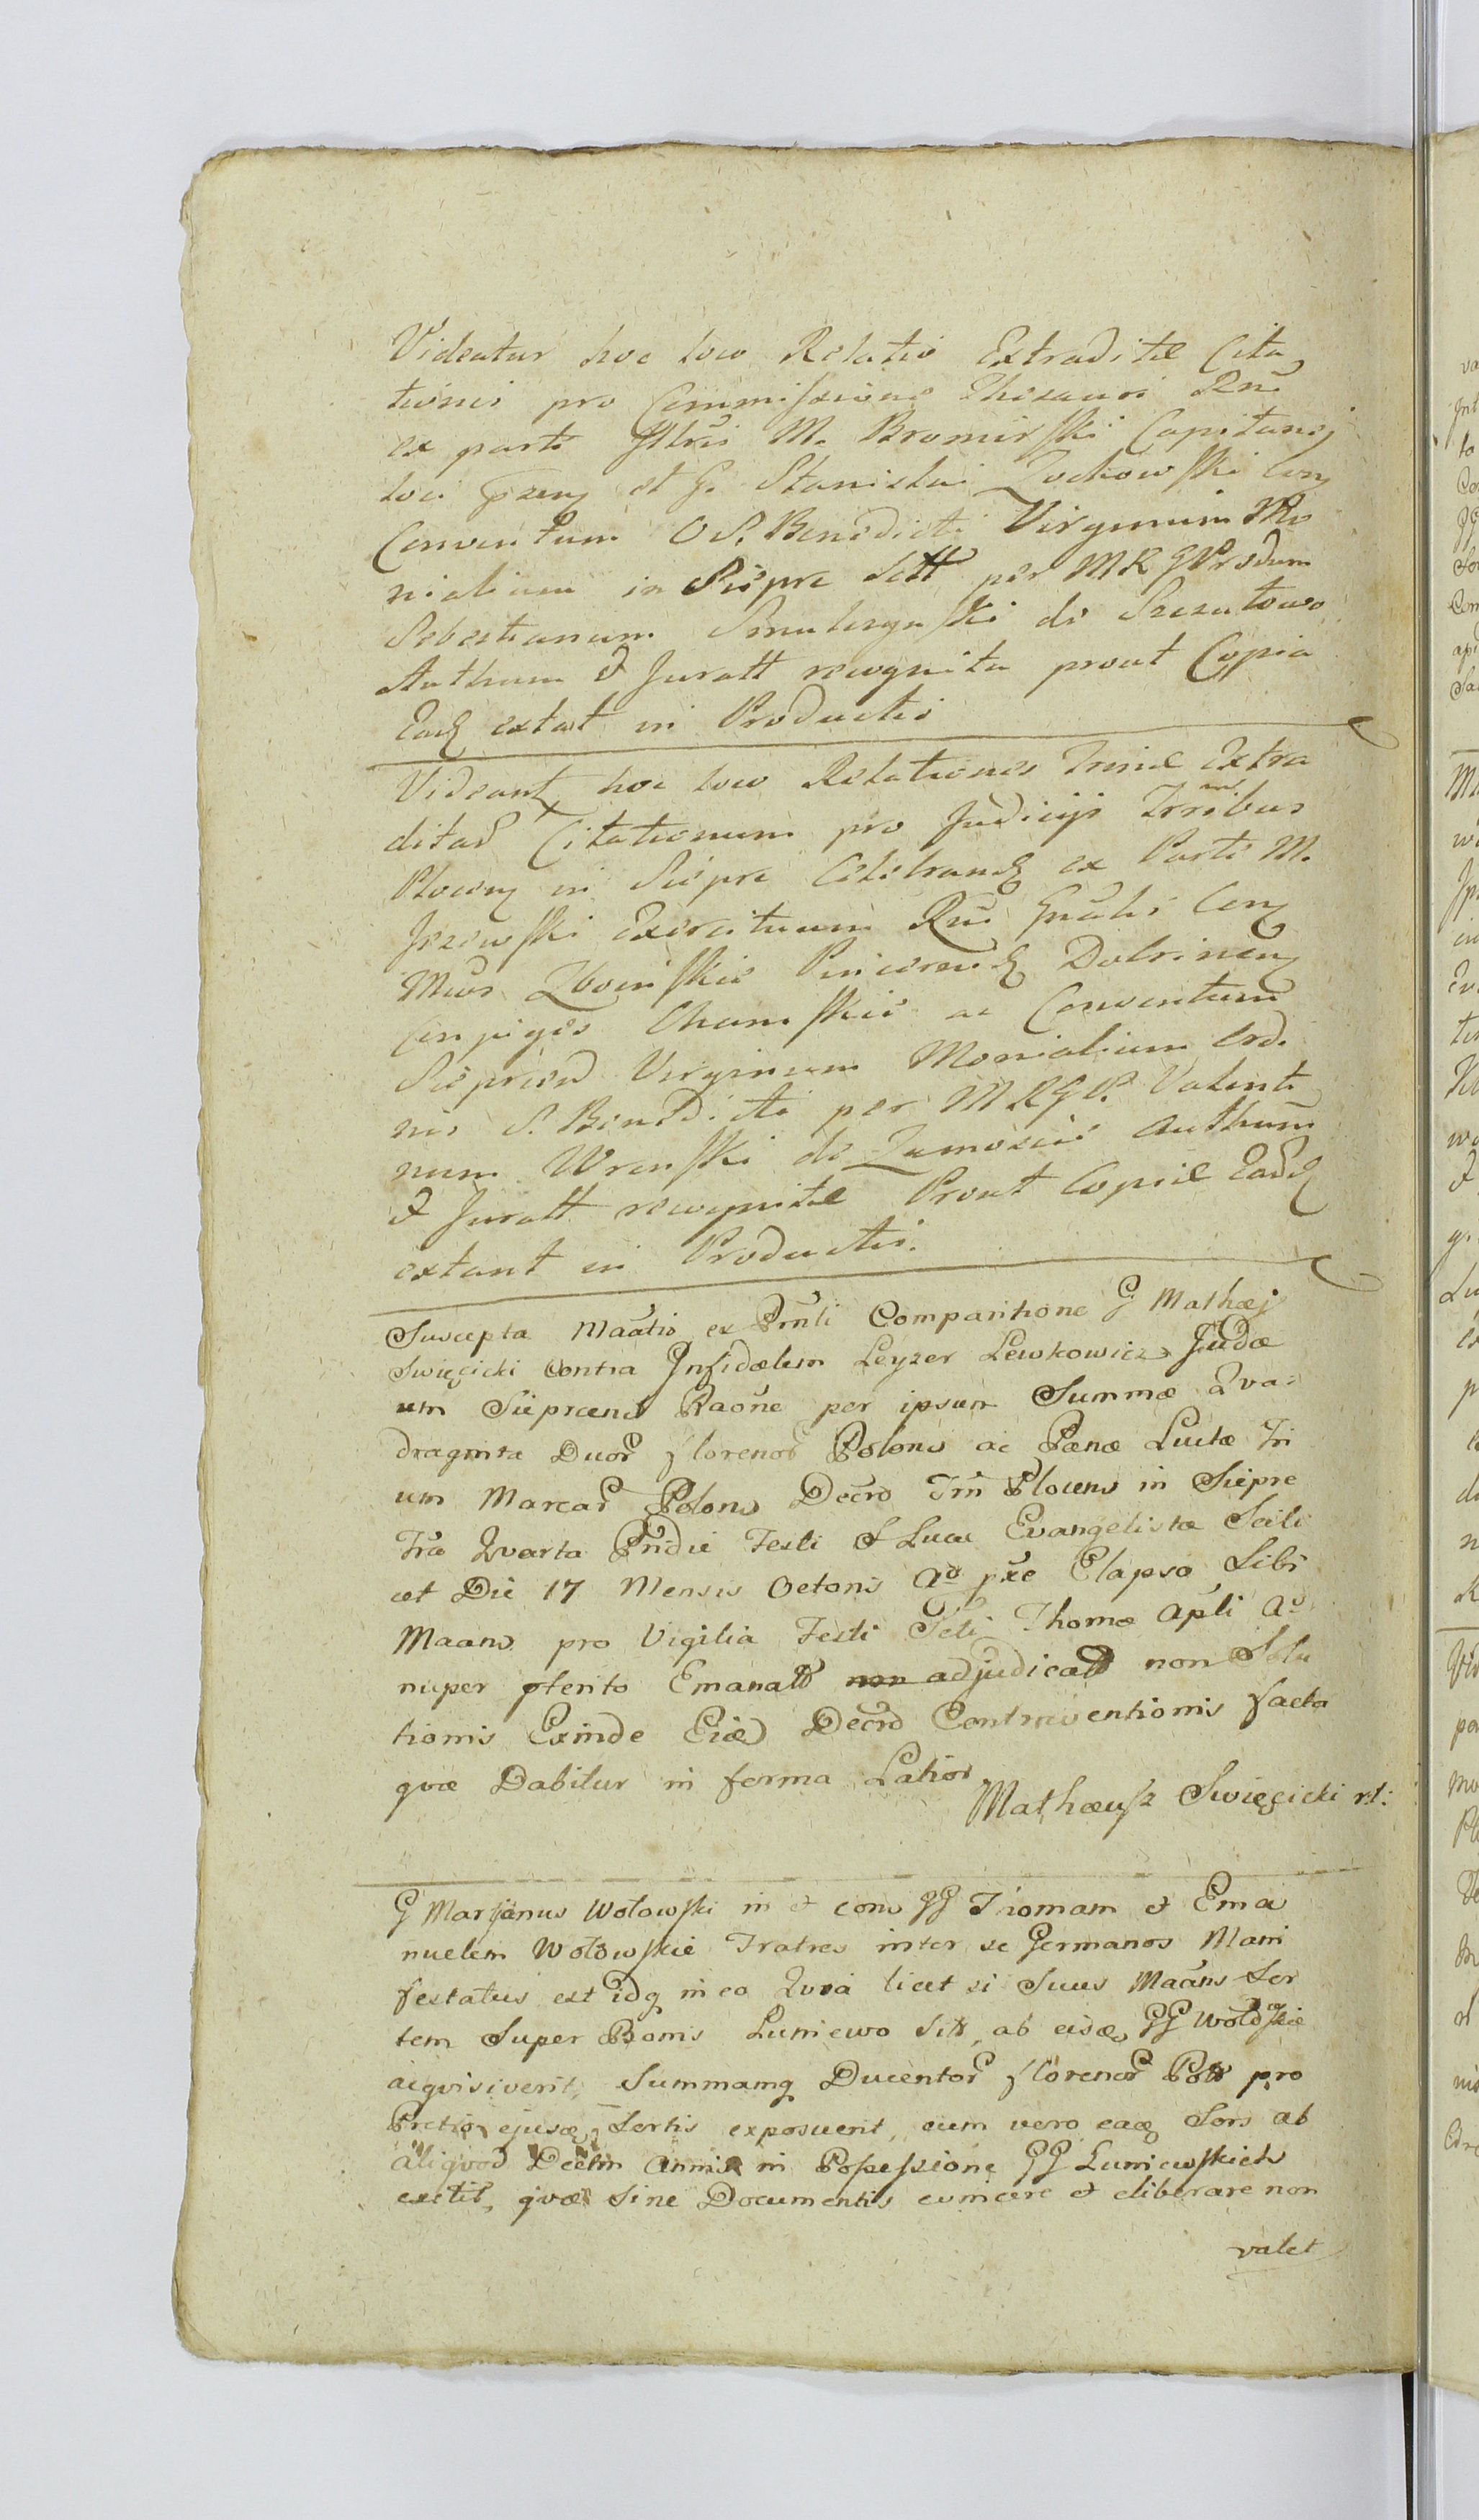 Videatur hoc loco Relatio Extraditæ Cita
tionis pro Commissione Thesauri Rni
ex parte Illris M. Bromirski Capitanej
loci et G. Stanislai Zochowski con
Conventum O S. Benedicti Virginum Mo
nialium in Sieprc Sctt per MRGPrsdum
Sebestianum Smulczynski de Szczutowo
Authum & Juratt recognita prout Copia
Ead extat in Productis
Videant hoc loco Relationes Trinæ extra
ditar Citationum pro Judicijs Trribus
Plocen in Sieprc Celebrand ex Parte M.
Jezewski Exercituum Rni Gnalis con
Mcos Zboinskie Pincerand Dobrinen
conjuges Chamskie ac Conventum
Sieprcen Virginum Monialium Ordi
nis S. Benedicti per MRGP. Valenti
num Wronski de Zamoscie Authum
& Juratt recognitæ Prout Copiæ Ead
extant in Productis.
Suscepta Maatio ex Prnti Comparitione G Mathæj
Swięcicki contra Infidælem Leyzer Lewkowicz Judæ
um Sieprcens Raõne per ipsum Summæ Qva-
draginta Duor florenor Polons ac Pænæ Luitæ Tri
um Marcar Polons Decro Trri Plocens in Sieprc
Fra Qvarta Pridie Festi S Lucæ Evangelistæ Scili
cet Die 17 Mensis Octoris Ao pxe Elapso Sibi
Maans pro Vigilia Festi Scti Thomæ Apli Ao
nuper pterito Emanatt non adjudicatt non Solu
tionis Exinde Decro Contraventionis facta
qvæ Dabitur in forma Latior
Mathæusz Swięcicki rt:
G Marjanus Wołowski in et cons GG Thomam et Ema
nuelem Wołowskie Fratres inter se Germanos Mani
festatus est idq in eo Qvia licet si Suus Maans Sor
tem Super Bonis Luniewo Sitt, ab eisd GG Wołoskie
acqvisiverit, Summamq Ducentor florenor Poll pro
Pretio ejusd Sortis exposuerit, cum vero eaq Sors ab
aliqvod Decim Annis in Possessione GG Luniewskich
extit, qvæ Sine Documentis evincere et eliberare non
valet